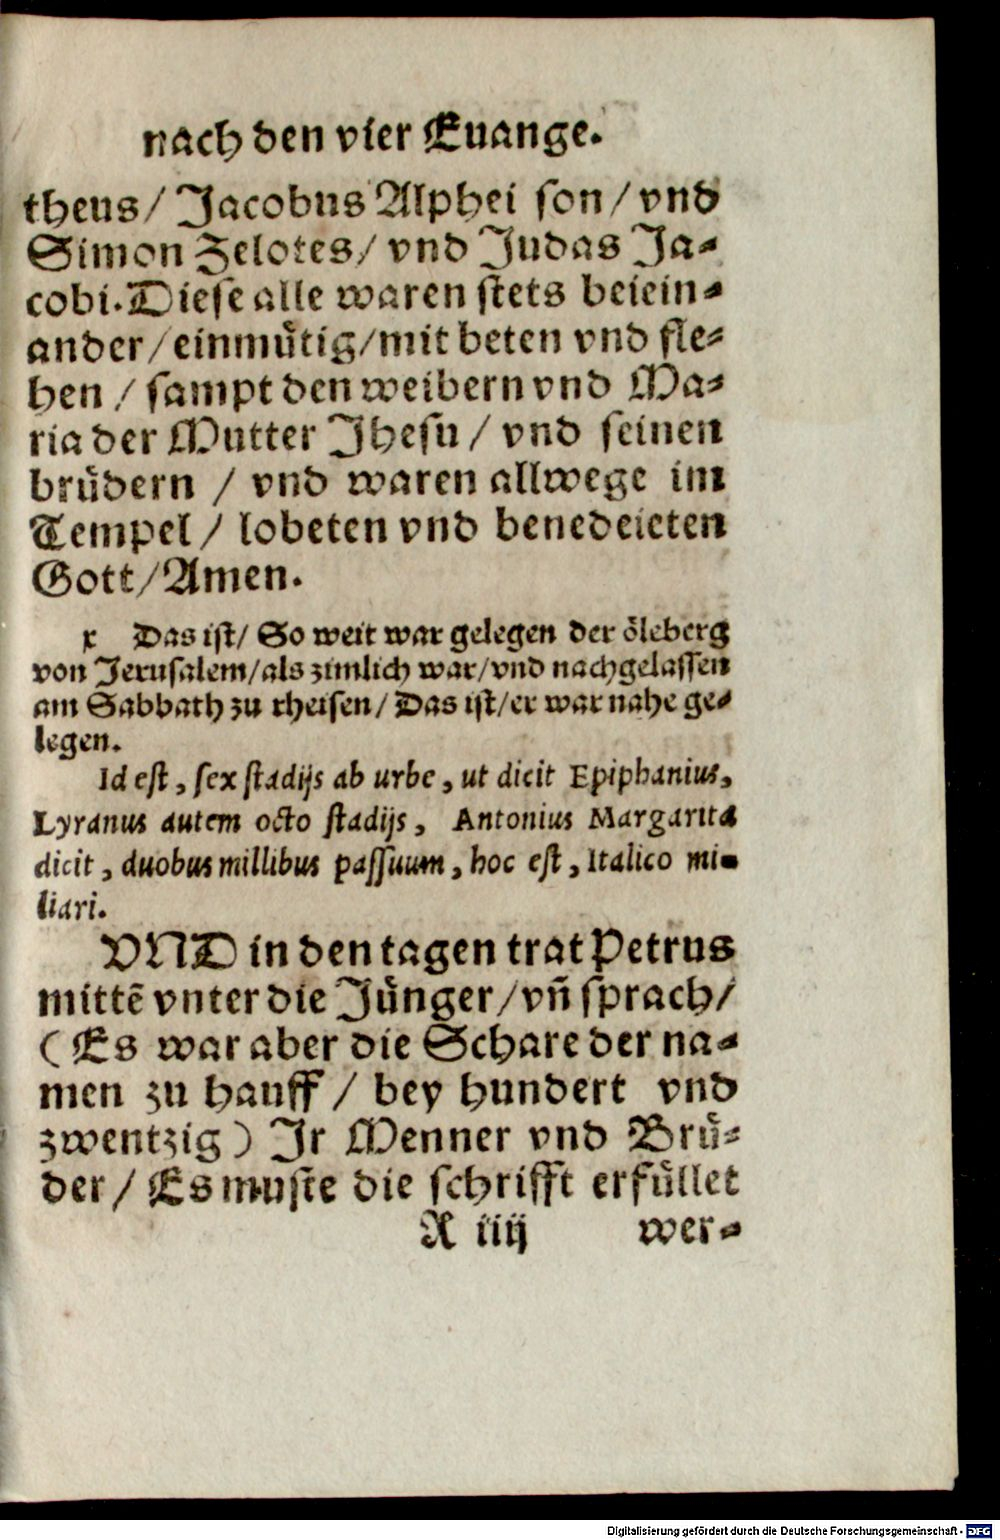 nach den vier Euange.
theus/ Jacobus Alphei son/ vnd
Simon Zelotes/ vnd Judas Ja-
cobi. Diese alle waren stets beiein-
ander/ einmuͤtig/ mit beten vnd fle-
hen / sampt den weibern vnd Ma-
ria der Mutter Jhesu / vnd seinen
bruͤdern / vnd waren allwege im
Tempel / lobeten vnd benedeieten
Gott/ Amen.
x Das ist/ So weit war gelegen der oͤleberg
von Jerusalem/ als zimlich war/ vnd nachgelassen
am Sabbath zu rheisen/ Das ist/ er war nahe ge-
legen.
Id est, sex stadijs ab urbe, ut dicit Epiphanius,
Lyranus autem octo stadijs, Antonius Margarita
dicit, duobus millibus passuum, hoc est, Italico mi-
liari.
VND in den tagen trat Petrus
mittē vnter die Juͤnger/ vn̄ sprach/
(Es war aber die Schare der na-
men zu hauff / bey hundert vnd
zwentzig) Jr Menner vnd Bruͤ-
der / Es muste die schrifft erfuͤllet
X iiij wer-
Digitalisierung gefördert durch die Deutsche Forschungsgemeinschaft - DFG